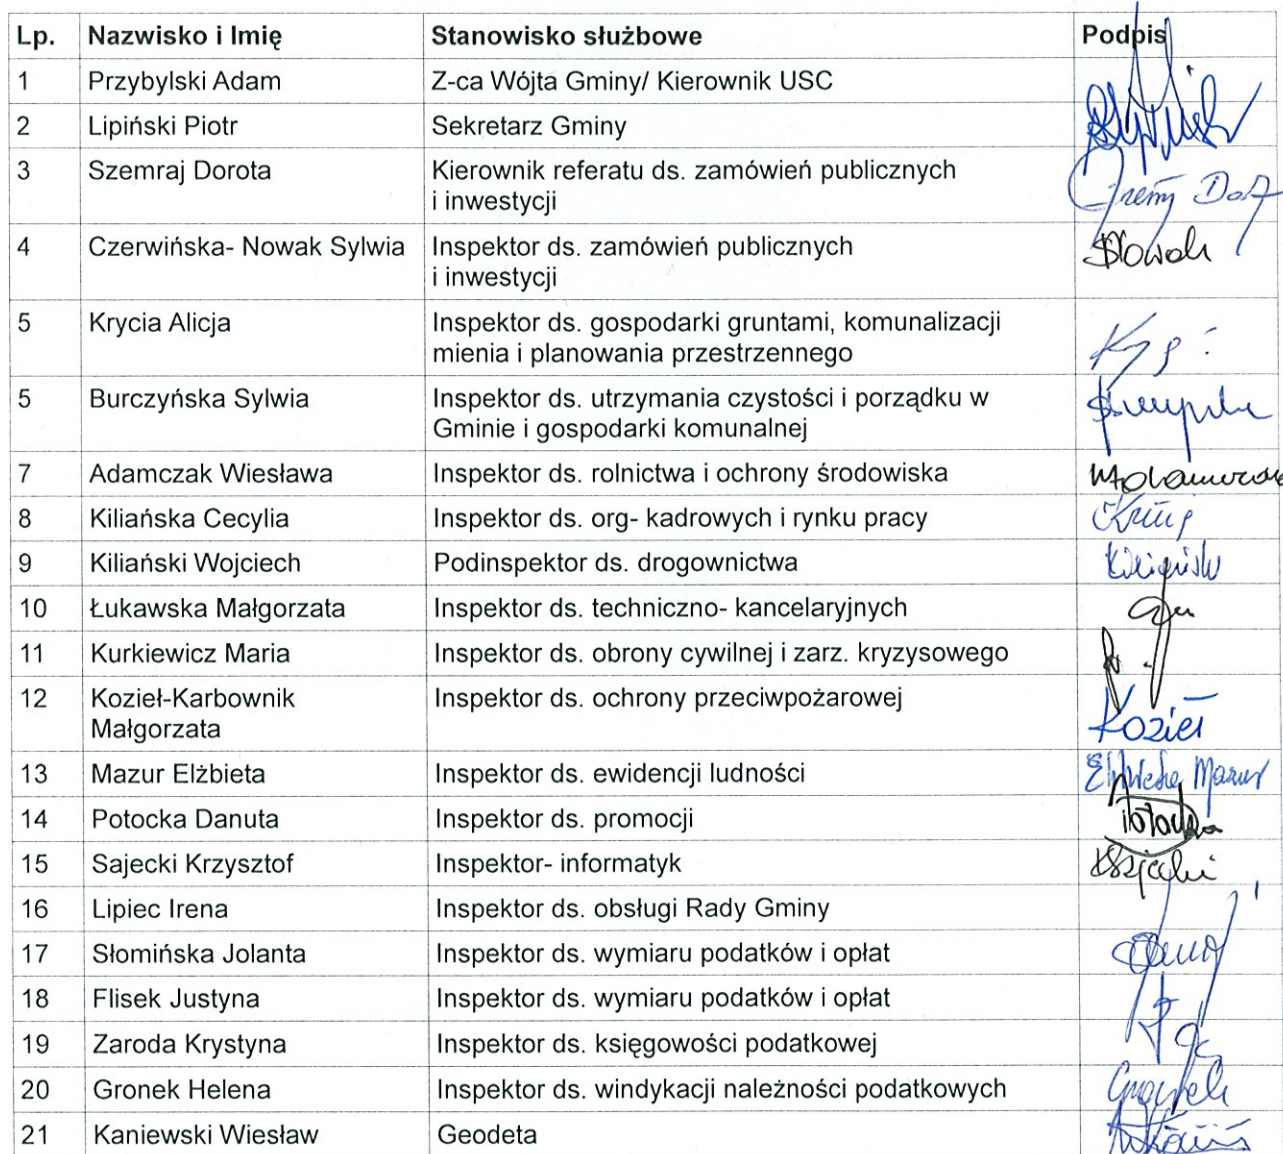 Lp. Nazwisko i Imię Stanowisko służbowe Podpis
1 Przybylski Adam Z-ca Wójta Gminy/ Kierownik USC
2 Lipiński Piotr Sekretarz Gminy
3 Szemraj Dorota Kierownik referatu ds. zamówień publicznych
i inwestycji
4 Czerwińska- Nowak Sylwia Inspektor ds. zamówień publicznych
i inwestycji
5 Krycia Alicja Inspektor ds. gospodarki gruntami, komunalizacji
mienia i planowania przestrzennego
5 Burczyńska Sylwia Inspektor ds. utrzymania czystości i porządku w
Gminie i gospodarki komunalnej
7 Adamczak Wiesława Inspektor ds. rolnictwa i ochrony środowiska
8 Kiliańska Cecylia Inspektor ds. org- kadrowych i rynku pracy
9 Kiliański Wojciech Podinspektor ds. drogownictwa
10 Łukawska Małgorzata Inspektor ds. techniczno- kancelaryjnych
11 Kurkiewicz Maria Inspektor ds. obrony cywilnej i zarz. kryzysowego
12 Kozieł-Karbownik Inspektor ds. ochrony przeciwpożarowej Kozieł
Małgorzata
13 Mazur Elżbieta Inspektor ds. ewidencji ludności Elżbieta Mazur
14 Potocka Danuta Inspektor ds. promocji
15 Sajecki Krzysztof Inspektor- informatyk
16 Lipiec Irena Inspektor ds. obsługi Rady Gminy
17 Słomińska Jolanta Inspektor ds. wymiaru podatków i opłat
18 Flisek Justyna Inspektor ds. wymiaru podatków i opłat
19 Zaroda Krystyna Inspektor ds. księgowości podatkowej
20 Gronek Helena Inspektor ds. windykacji należności podatkowych
21 Kaniewski Wiesław Geodeta